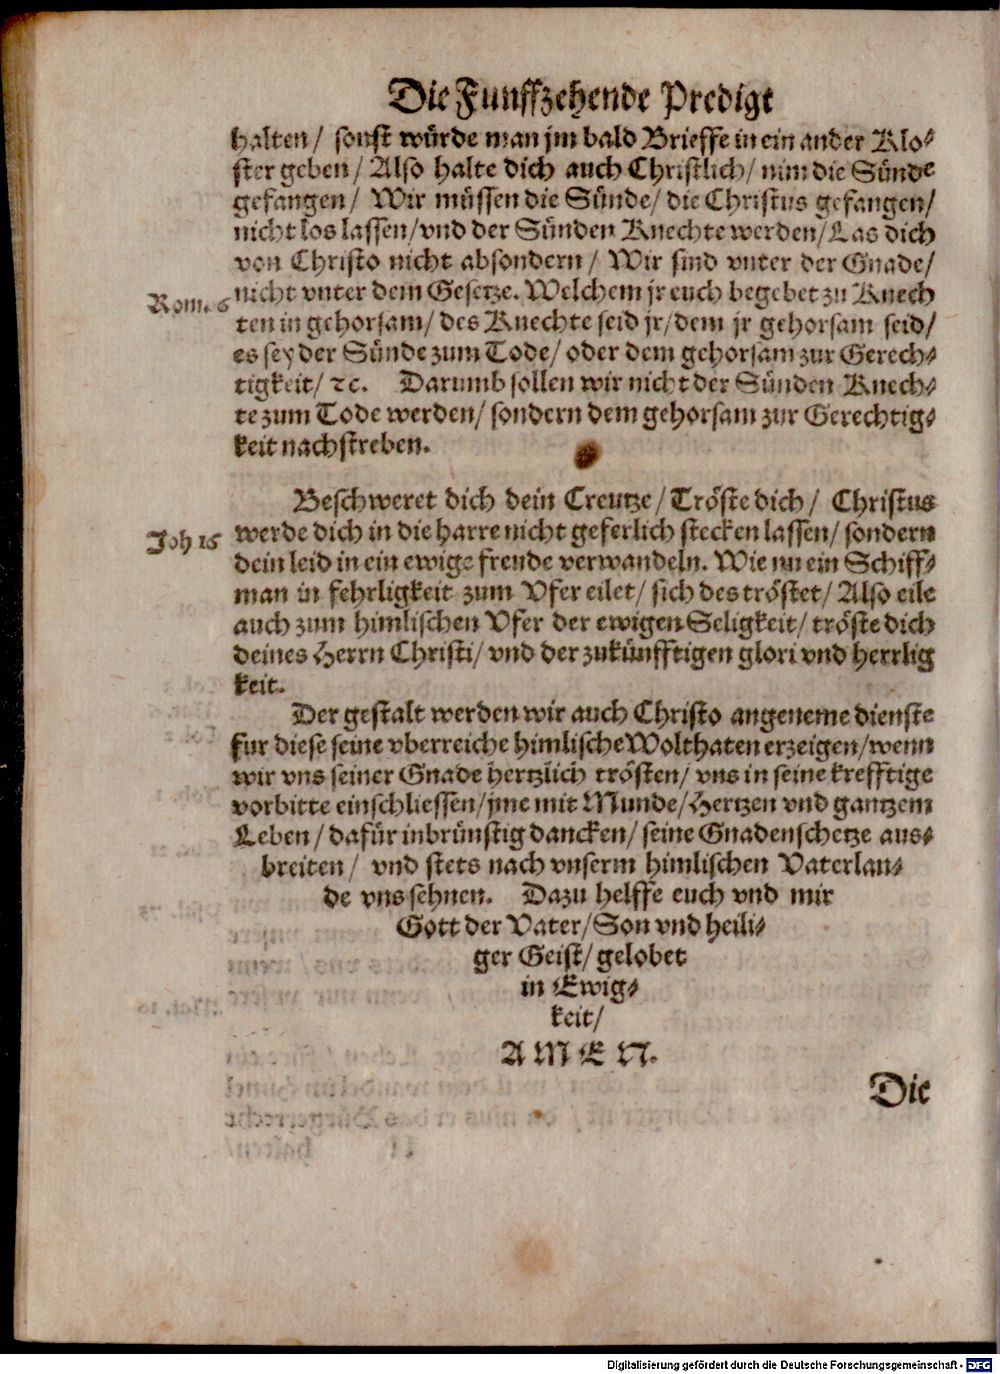 Die Funffzehende Predigt
halten / sonst würde man jm bald Brieffe in ein ander Klo-
ster geben / Also halte dich auch Christlich / nim die Sünde
gefangen / Wir müssen die Sünde / die Christus gefangen /
nicht los lassen / vnd der Sünden Knechte werden / Las dich
von Christo nicht absondern / Wir sind vnter der Gnade /
Rom. 6 nicht vnter dem Gesetze. Welchem jr euch begebet zu Knech
ten in gehorsam / des Knechte seid jr / dem jr gehorsam seid /
es sey der Sünde zum Tode / oder dem gehorsam zur Gerech-
tigkeit / ꝛc. Darumb sollen wir nicht der Sünden Knech-
te zum Tode werden / sondern dem gehorsam zur Gerechtig-
keit nachstreben.
Beschweret dich dein Creutze / Tröste dich / Christus
Joh 16 werde dich in die harre nicht geferlich stecken lassen / sondern
dein leid in ein ewige freude verwandeln. Wie nu ein Schiff-
man in fehrligkeit zum Vfer eilet / sich des tröstet / Also eile
auch zum himlischen Vfer der ewigen Seligkeit / tröste dich
deines Herrn Christi / vnd der zukünfftigen glori vnd herrlig
keit.
Der gestalt werden wir auch Christo angeneme dienste
fur diese seine vberreiche himlische Wolthaten erzeigen / wenn
wir vns seiner Gnade hertzlich trösten / vns in seine krefftige
vorbitte einschliessen / jme mit Munde / Hertzen vnd gantzem
Leben / dafür inbrünstig dancken / seine Gnadenschetze aus-
breiten / vnd stets nach vnserm himlischen Vaterlan-
de vns sehnen. Dazu helffe euch vnd mir
Gott der Vater / Son vnd heili-
ger Geist / gelobet
in Ewig-
keit /
A M E N.
Die
Digitalisierung gefördert durch die Deutsche Forschungsgemeinschaft - DFG